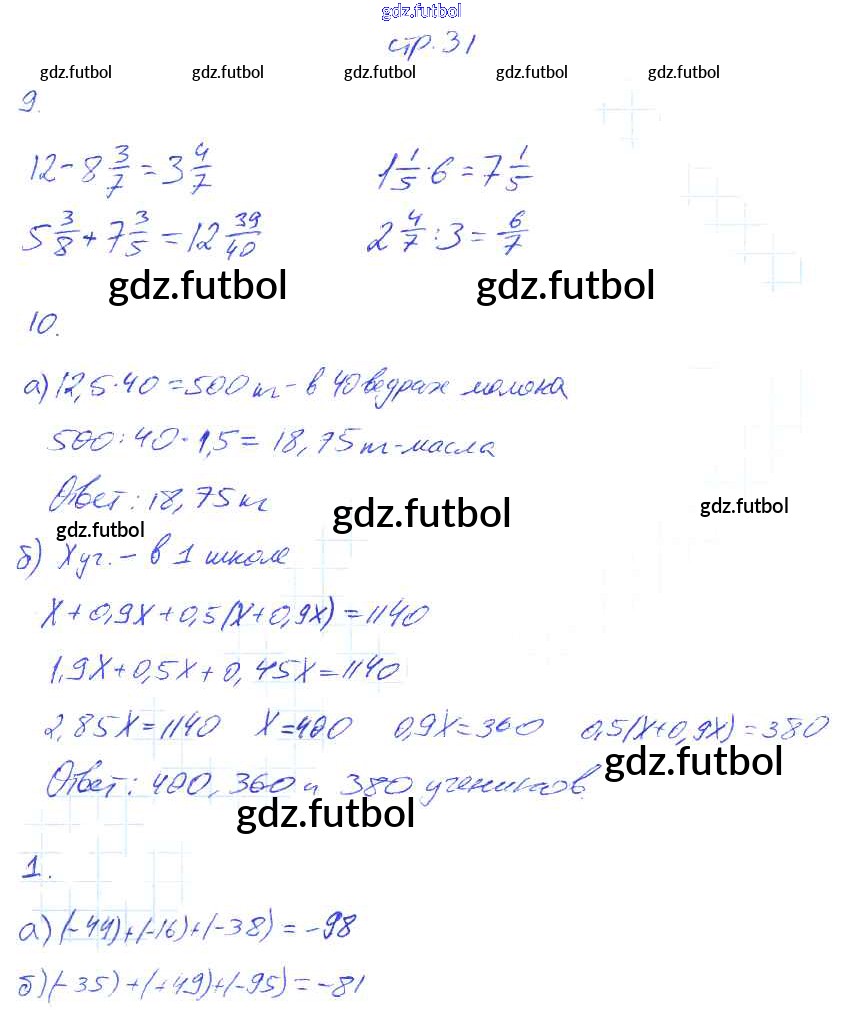 gdz.futbol
стр. 31
gdz.futbol gdz.futbol gdz.futbol gdz.futbol gdz.futbol
9.
12 - 8 3/7 = 3 4/7 1 1/5 · 6 = 7 1/5
5 3/8 + 7 3/5 = 12 39/40 2 4/7 : 3 = 6/7
gdz.futbol gdz.futbol
10.
а) 12,5 · 40 = 500 кг - в 40 ведрах молока
500 : 40 · 1,5 = 18,75 кг - масла
Ответ: 18,75 кг
gdz.futbol gdz.futbol gdz.futbol
б) X уч. - в 1 школе
X + 0,9X + 0,5(X + 0,9X) = 1140
1,9X + 0,5X + 0,45X = 1140
2,85X = 1140 X = 400 0,9X = 360 0,5(X + 0,9X) = 380
gdz.futbol
Ответ: 400, 360 и 380 учеников.
gdz.futbol
1.
а) (-44) + (-16) + (-38) = -98
б) (-35) + (+49) + (-95) = -81